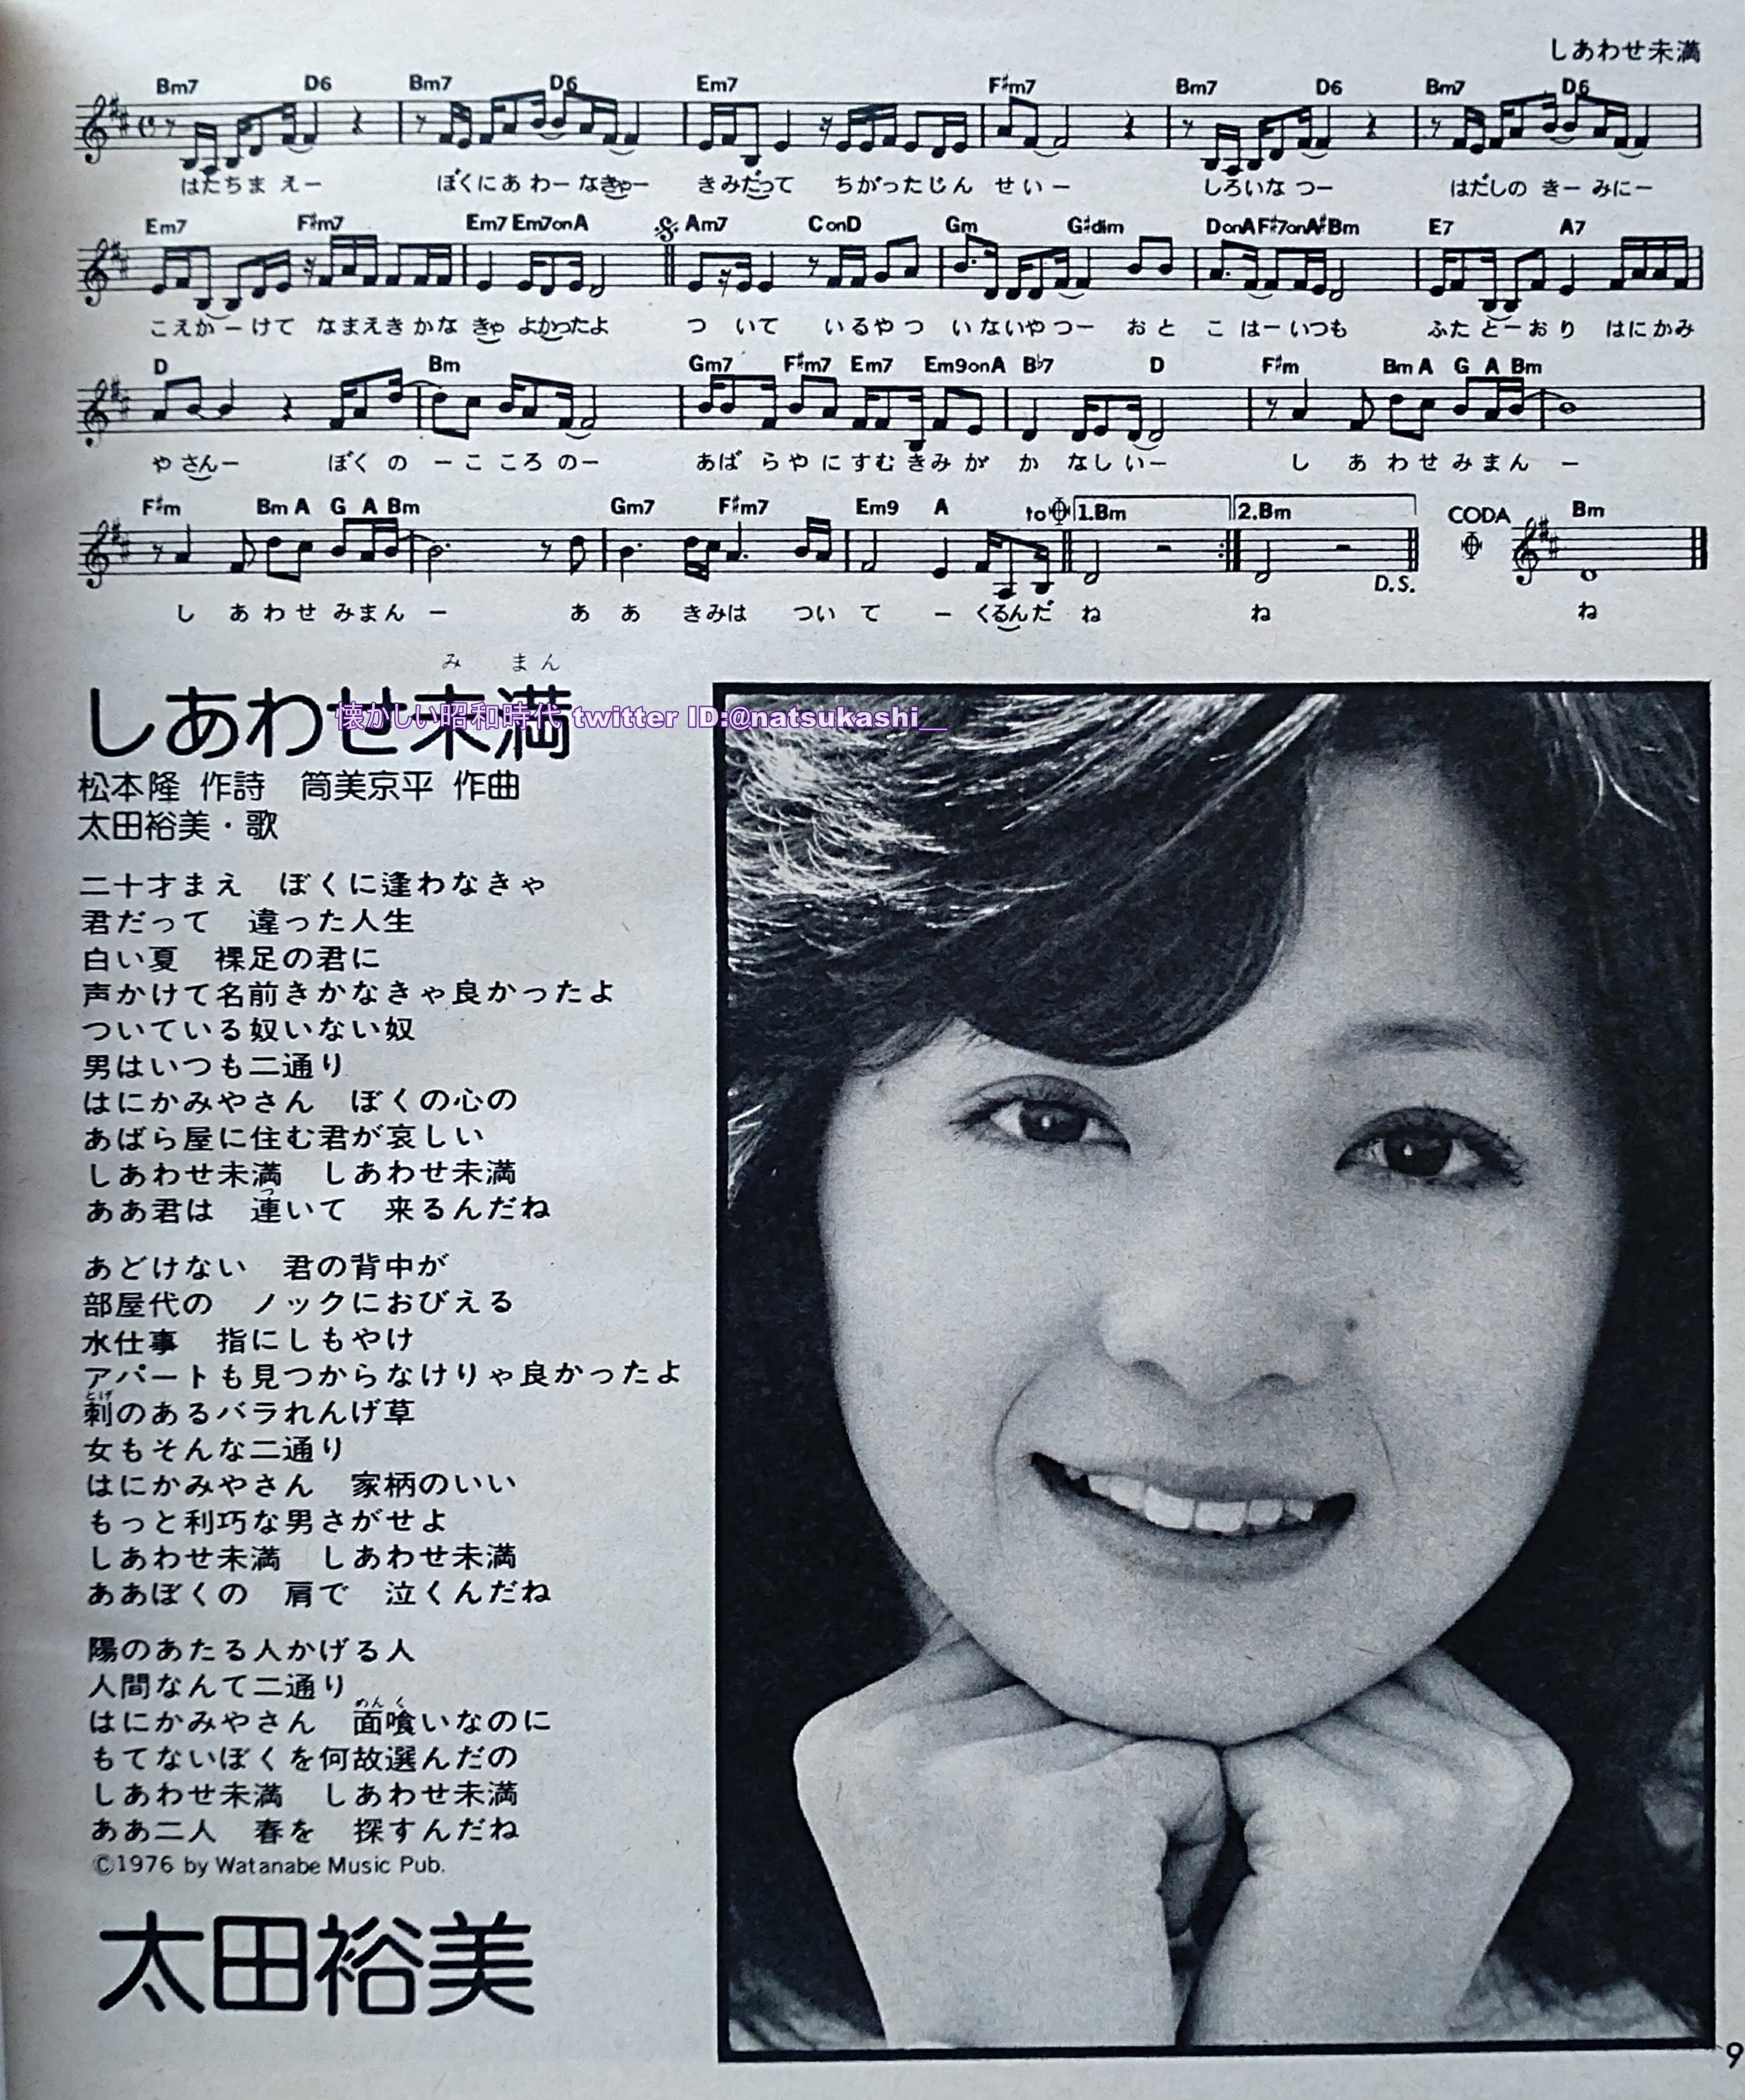 しあわせ未満
Bm7 D6 Bm7 D6 Em7 F#m7 Bm7 D6 Bm7 D6
はたちま えー ぼくにあ わー なきゃー きみだって ちがったじん せいー しろいな つー はだしの きー みにー
Em7 F#m7 Em7 Em7onA Am7 ConD Gm G#dim DonA F#7onA# Bm E7 A7
こえかーけて なまえきかな きゃ よかったよ つ いて いるやつ いないやつー おと こ はーいつも ふた とーおり はにかみ
D Bm Gm7 F#m7 Em7 Em9onA B♭7 D F#m Bm A G A Bm
や さんー ぼく の ーこ ころ のー あば らやに すむ きみ が か なしいー し あ わ せ み ま ん ー
F#m Bm A G A Bm Gm7 F#m7 Em9 A to 1.Bm 2.Bm CODA Bm
D.S.
し あ わ せ みまん ー あ あ きみは つい て ー くるんだ ね ね ね
み まん
しあわせ未満
懐かしい昭和時代 twitter ID:@natsukashi__
松本隆 作詩 筒美京平 作曲
太田裕美・歌
二十才まえ ぼくに逢わなきゃ
君だって 違った人生
白い夏 裸足の君に
声かけて名前きかなきゃ良かったよ
ついている奴いない奴
男はいつも二通り
はにかみやさん ぼくの心の
あばら屋に住む君が哀しい
しあわせ未満 しあわせ未満
つ
ああ君は 連いて 来るんだね
あどけない 君の背中が
部屋代の ノックにおびえる
水仕事 指にしもやけ
アパートも見つからなけりゃ良かったよ
とげ
刺のあるバラれんげ草
女もそんな二通り
はにかみやさん 家柄のいい
もっと利巧な男さがせよ
しあわせ未満 しあわせ未満
ああぼくの 肩で 泣くんだね
陽のあたる人かげる人
人間なんて二通り
めんく
はにかみやさん 面喰いなのに
もてないぼくを何故選んだの
しあわせ未満 しあわせ未満
ああ二人 春を 探すんだね
©1976 by Watanabe Music Pub.
太田裕美
9